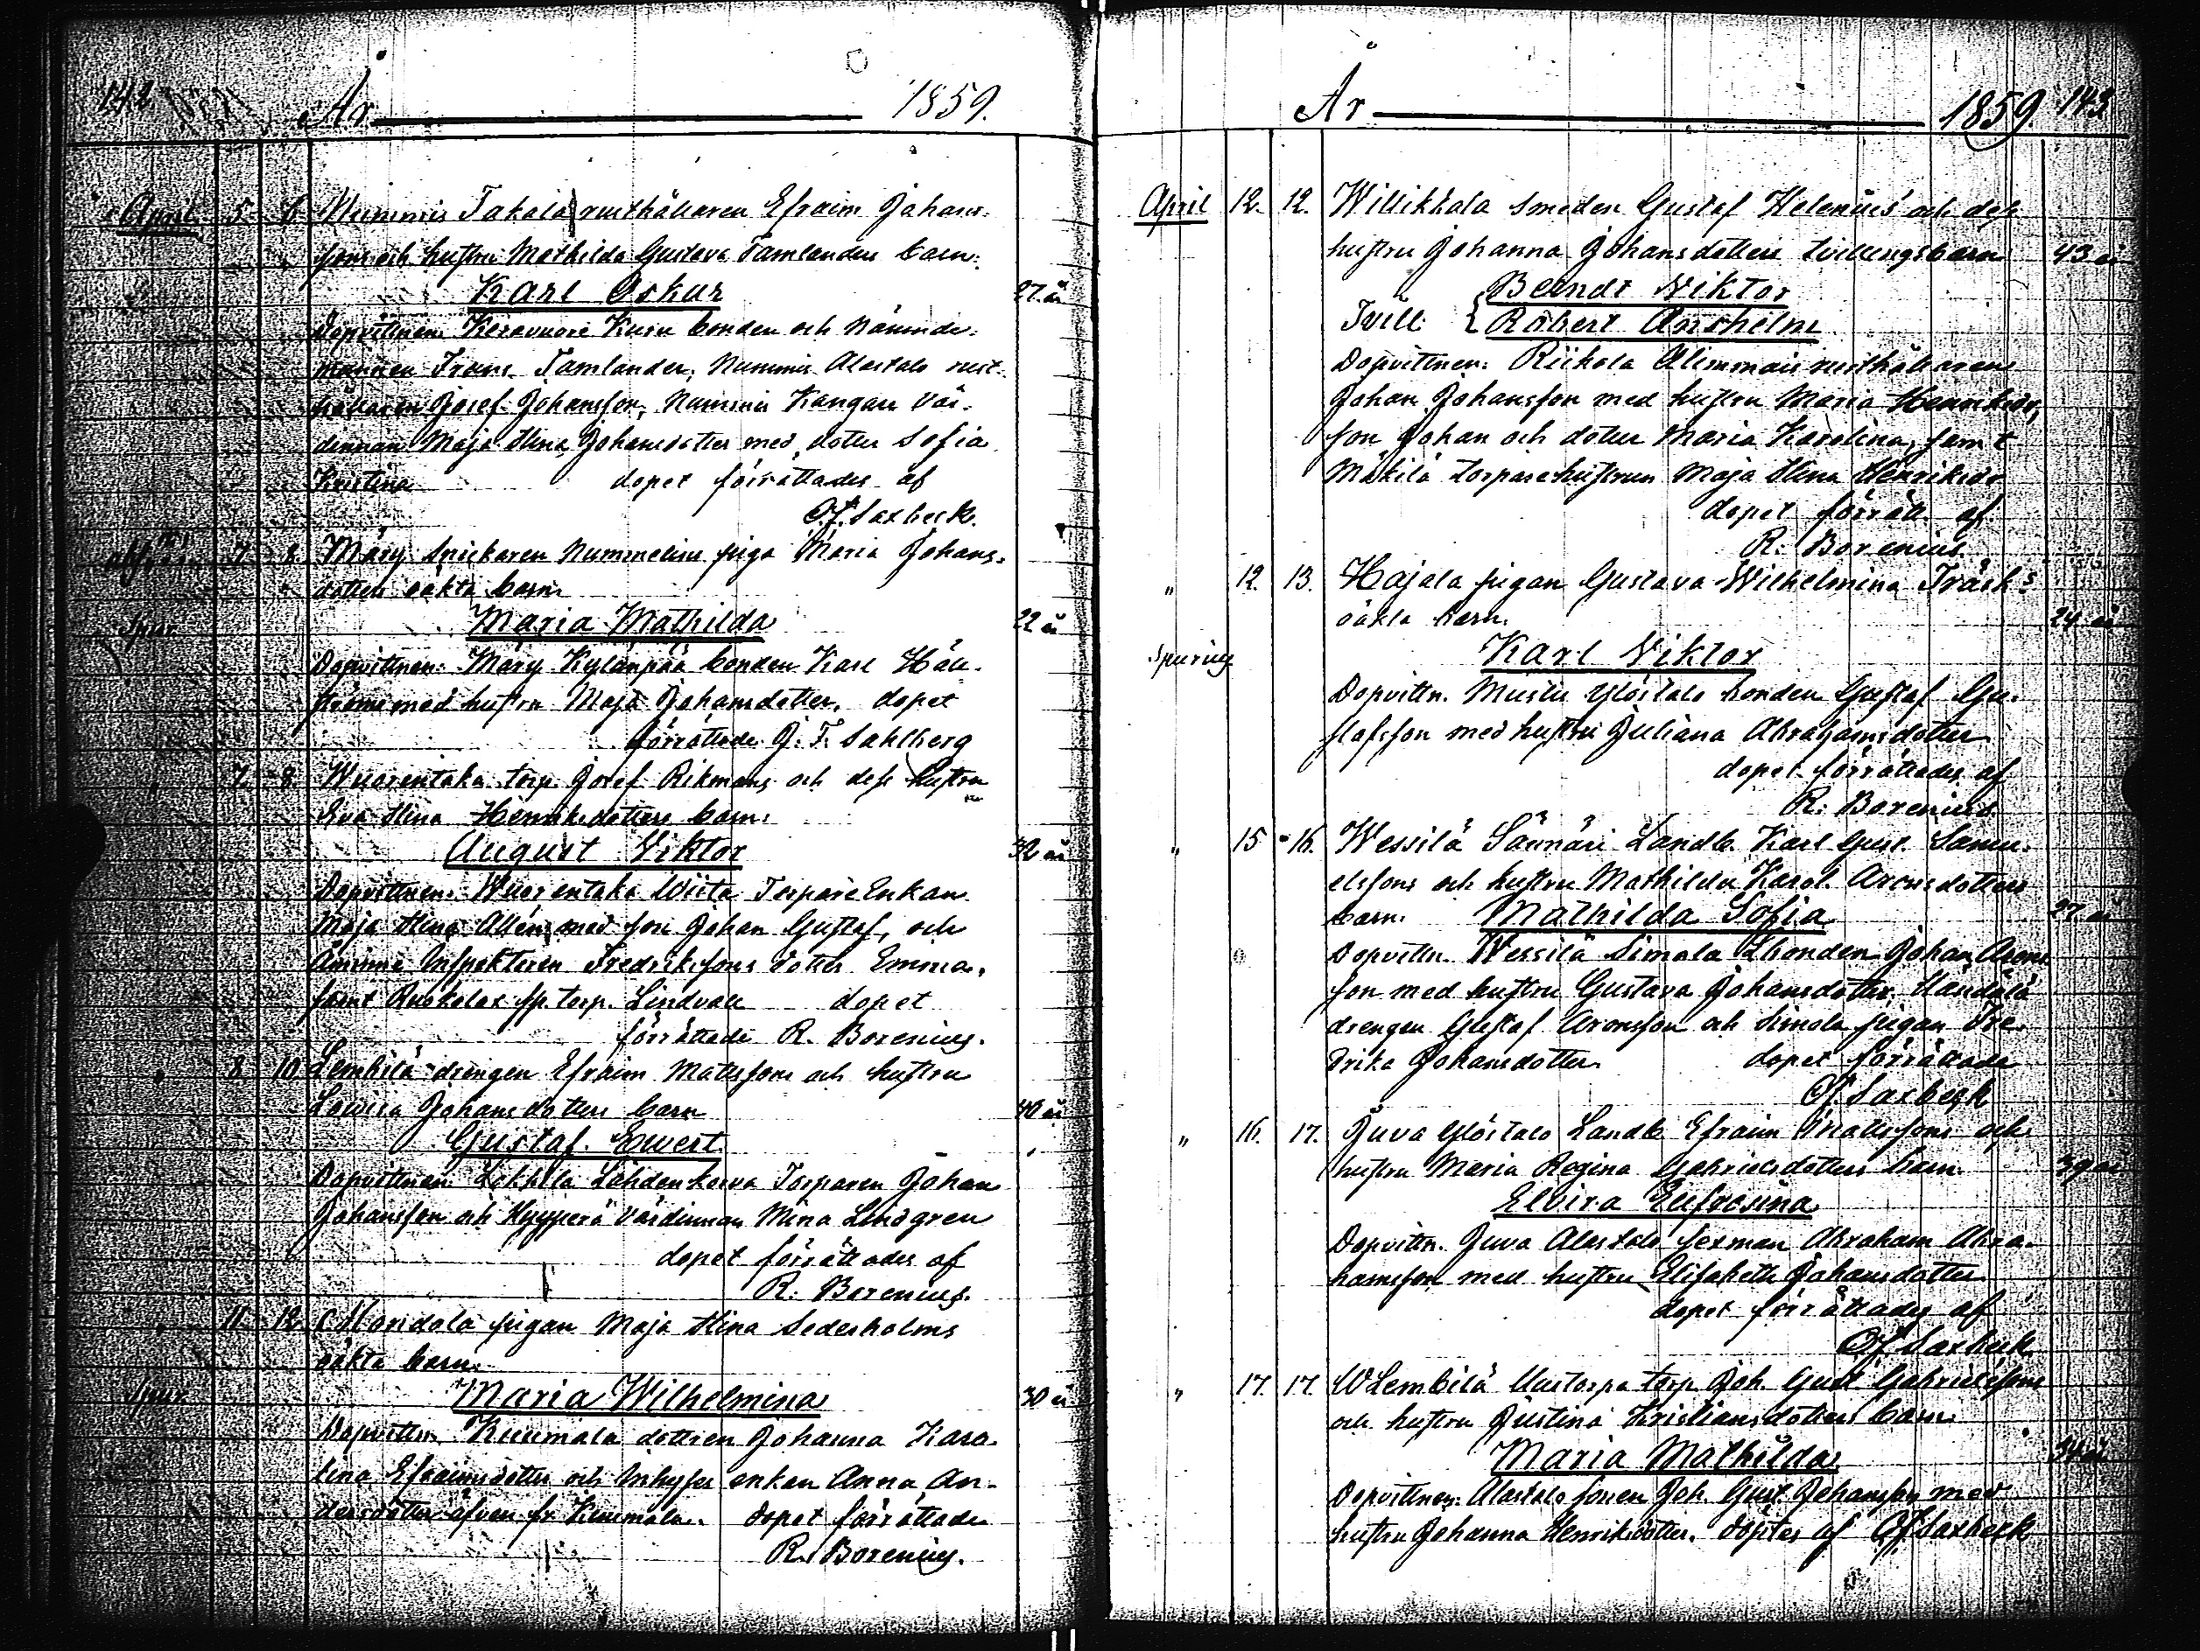 142
År 1859.
April 5 6 Nummis Takala rusthållaren Efraim Johans-
sons och hustru Mathilda Gustava Tamlanders barn:
Karl Oskar 27 år
Dopvittnen: Keravuori Kuru bonden och Nämnde-
mannen Frans Tamlander, Nummis Alastalo rust-
hållaren Josef Johansson, Nummis Kangan Vär-
dinnan Maja Stina Johansdotter med dotter Sofia
Kristina dopet förrättades af
O.F. Saxbeck.
7 8 Märy Snickaren Nummelins piga Maria Johans-
dotters oäkta barn
Spur Maria Mathilda 22 år
Dopvittnen: Märy Kylänpää bonden Karl Häll-
ströms med hustru Maja Johansdotter. dopet
förrättade J. F. Sahlberg
7. 8. Wuorentaka torp. Josef Rikmans och dess hustru
Eva Stina Henriksdotters barn:
August Viktor 32 år
Dopvittnen: Wuorentaka Wiita Torpare Enkan
Maja Stina Allén med son Johan Gustaf, och
Åminne Inspektoren Fredrikssons dotter Emma,
samt Ruokolax sp. torp. Lindvall dopet
förrättade R. Borenius.
8 10 Lembilä drängen Efraim Mattssons och hustru
Lovisa Johansdotters barn 40 år
Gustaf Evert
Dopvittnen: Lehtila Lahdenkorva Torparen Johan
Johansson och Hyyperä Värdinnan Mina Lindgren
dopet förrättades af
R. Borenius.
11 12 Moridala pigan Maja Stina Sederholms
oäkta barn
Spur Maria Wilhelmina 30 år
Dopvittn. Kuumala dottren Johanna Karo-
lina Efraimsdotter och Inhyses enkan Anna An-
dersdotter äfven fr. Kuumala. dopet förrättade
R. Borenius.
År 1859. 143
April 12. 12. Willikkala Smeden Gustaf Helenius' och dess
hustru Johanna Johansdotters tvillingsbarn 43 år
Berndt Viktor
Tvill. { Robert Anshelm
Dopvittnen: Riikola Alimmais rusthållaren
Johan Johansson med hustru Maria Henriksdr,
son Johan och dotter Maria Karolina, samt
Mäkilä torparehustrun Maja Stina Henriksdr
dopet förrätt. af
R. Borenius.
" 12. 13. Hajala pigan Gustava Wilhelmina Träsks
oäkta barn. 24 år
Spurius Karl Viktor
Dopvittn. Mustis Ylöstalo bonden Gustaf Gu-
stafsson med hustru Juliana Abrahamsdotter
dopet förrättades af
R. Borenius.
" 15 16. Wessilä Säynäri Landb. Karl Gust. Samu-
elssons och hustru Mathilda Karol. Aronsdotters
barn. Mathilda Sofia 27 år
Dopvittn. Wessilä Simola Lbonden Johan Arons-
son med hustru Gustava Johansdotter,
drengen Gustaf Aronsson och Simola pigan Fre-
drika Johansdotter. dopet förrättade
O.F. Saxbeck
" 16. 17. Juva Ylöstalo Landb. Efraim Mattssons och
hustru Maria Regina Gabrielsdotters barn 39 år
Elvira Eufrosina
Dopvittn. Juva Alastalo sexman Abraham Abra-
hamsson med hustru Elisabeth Johansdotter
dopet förrättades af
O.F. Saxbeck
" 17. 17. W Lembilä Uustorpa torp. Joh. Gust. Gabrielssons
och hustru Justina Kristiansdotters barn
Maria Mathilda 34 år
Dopvittnen: Alastalo sonen Joh. Gust. Johansson med
hustru Johanna Henriksdotter. döptes af O.F. Saxbeck